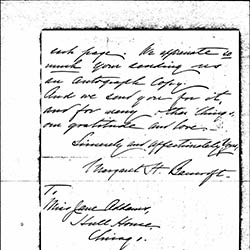 each page. We appreciate so
much your sending us
an autograph copy.
And we send you for it,
and for many other things,
our gratitude and love.
Sincerely and affectionately yours,
Margaret H. Bancroft.
To,
Miss Jane Addams,
Hull House,
Chicago.